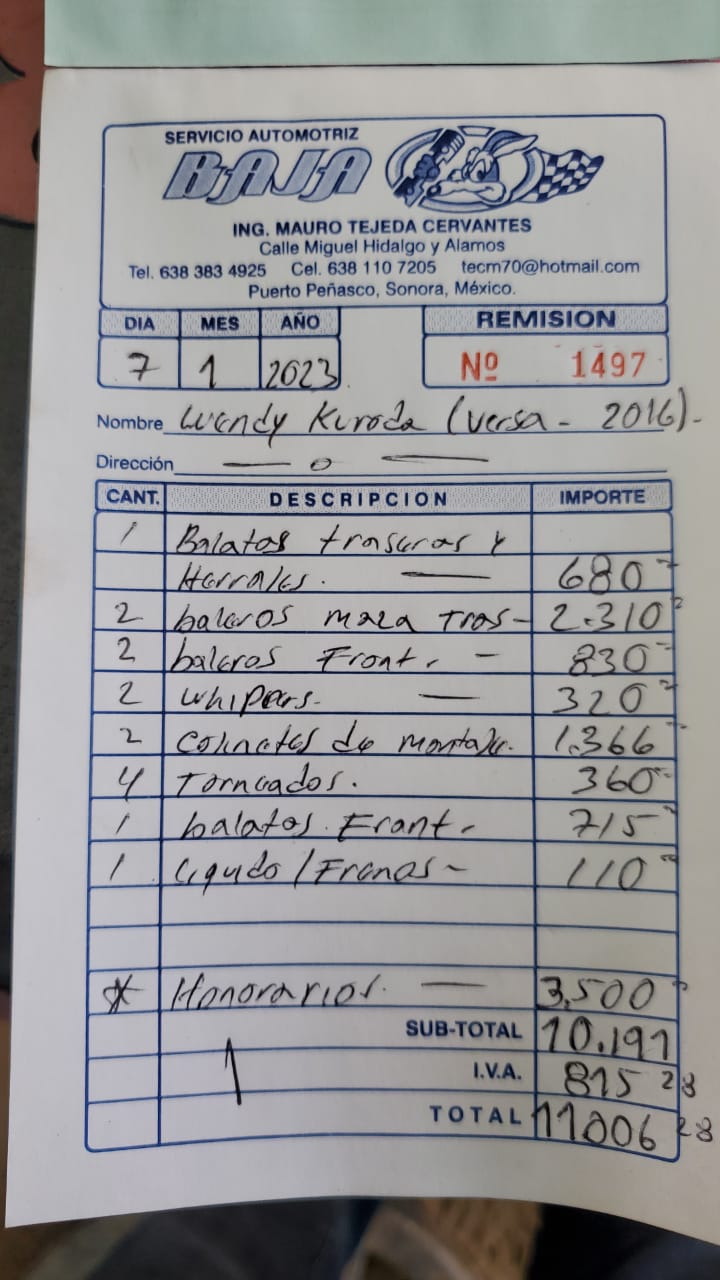 SERVICIO AUTOMOTRIZ
BAJA
ING. MAURO TEJEDA CERVANTES
Calle Miguel Hidalgo y Alamos
Tel. 638 383 4925 Cel. 638 110 7205 tecm70@hotmail.com
Puerto Peñasco, Sonora, México.
DIA MES AÑO REMISION
7 1 2023 Nº 1497
Nombre Wendy Kuroda (Versa - 2016).-
Dirección — o —
CANT. DESCRIPCION IMPORTE
1 Balatas traseras y
Herrales. — 680
2 baleros maza Tras- 2.310
2 baleros Front. - 830
2 whipers. — 320
2 de montaje. 1.366
4 Torneados. 360
1 balatas Frant. 715
1 Liqudo / Frenos - 110
* Honorarios. — 3,500
SUB-TOTAL 10.191
I.V.A. 815 28
TOTAL 11006 28